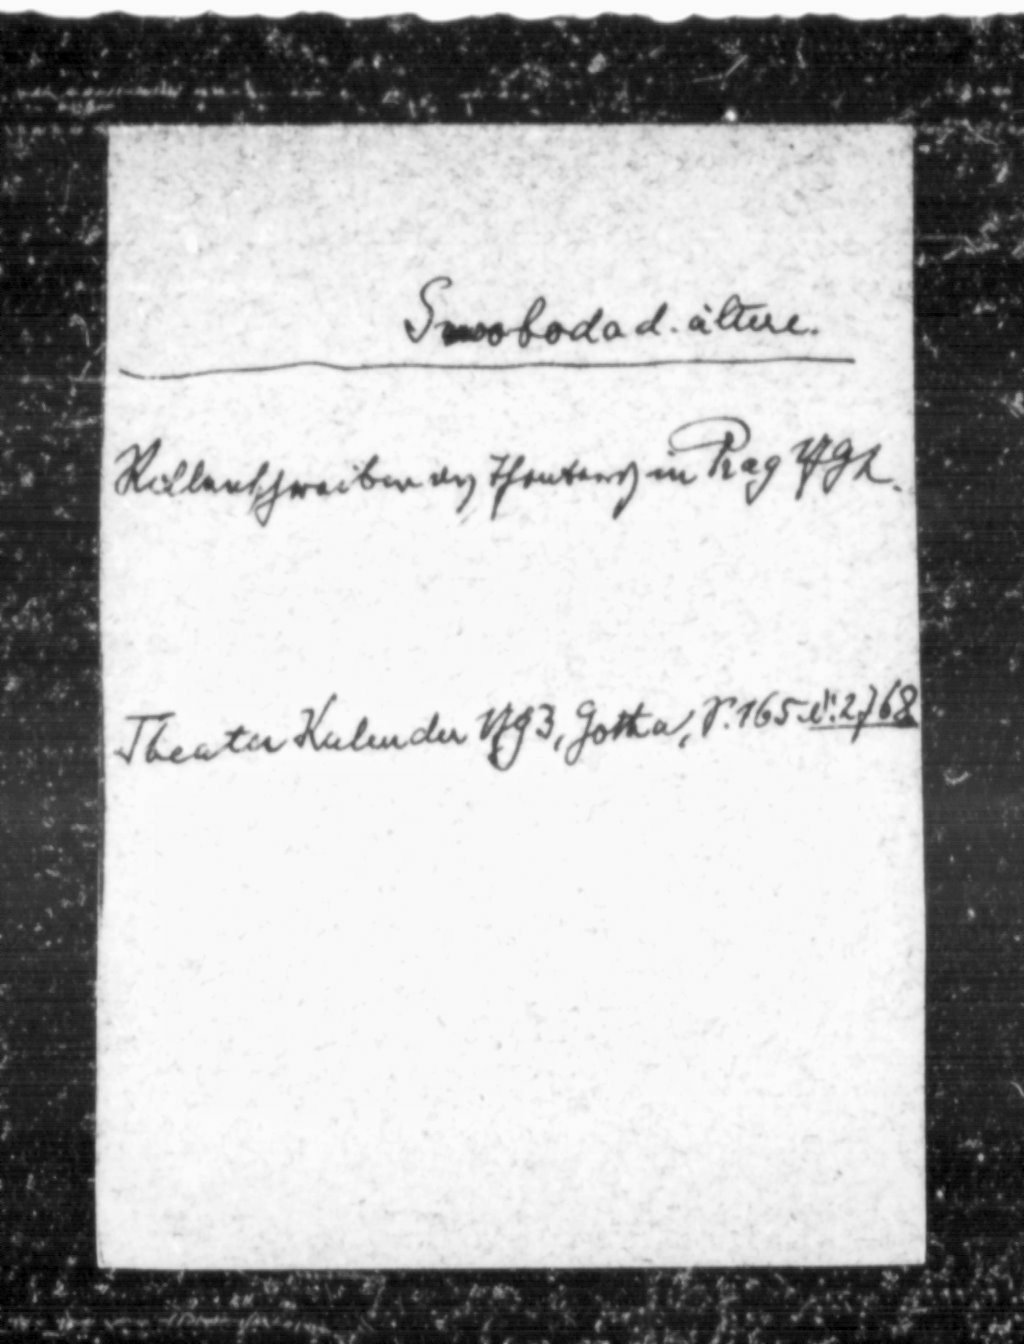 Swoboda d. ältere.
Rollenschreiber des Theaters in Prag 1792.
Theater Kalender 1793, Gotha, S. 165. č. 2768